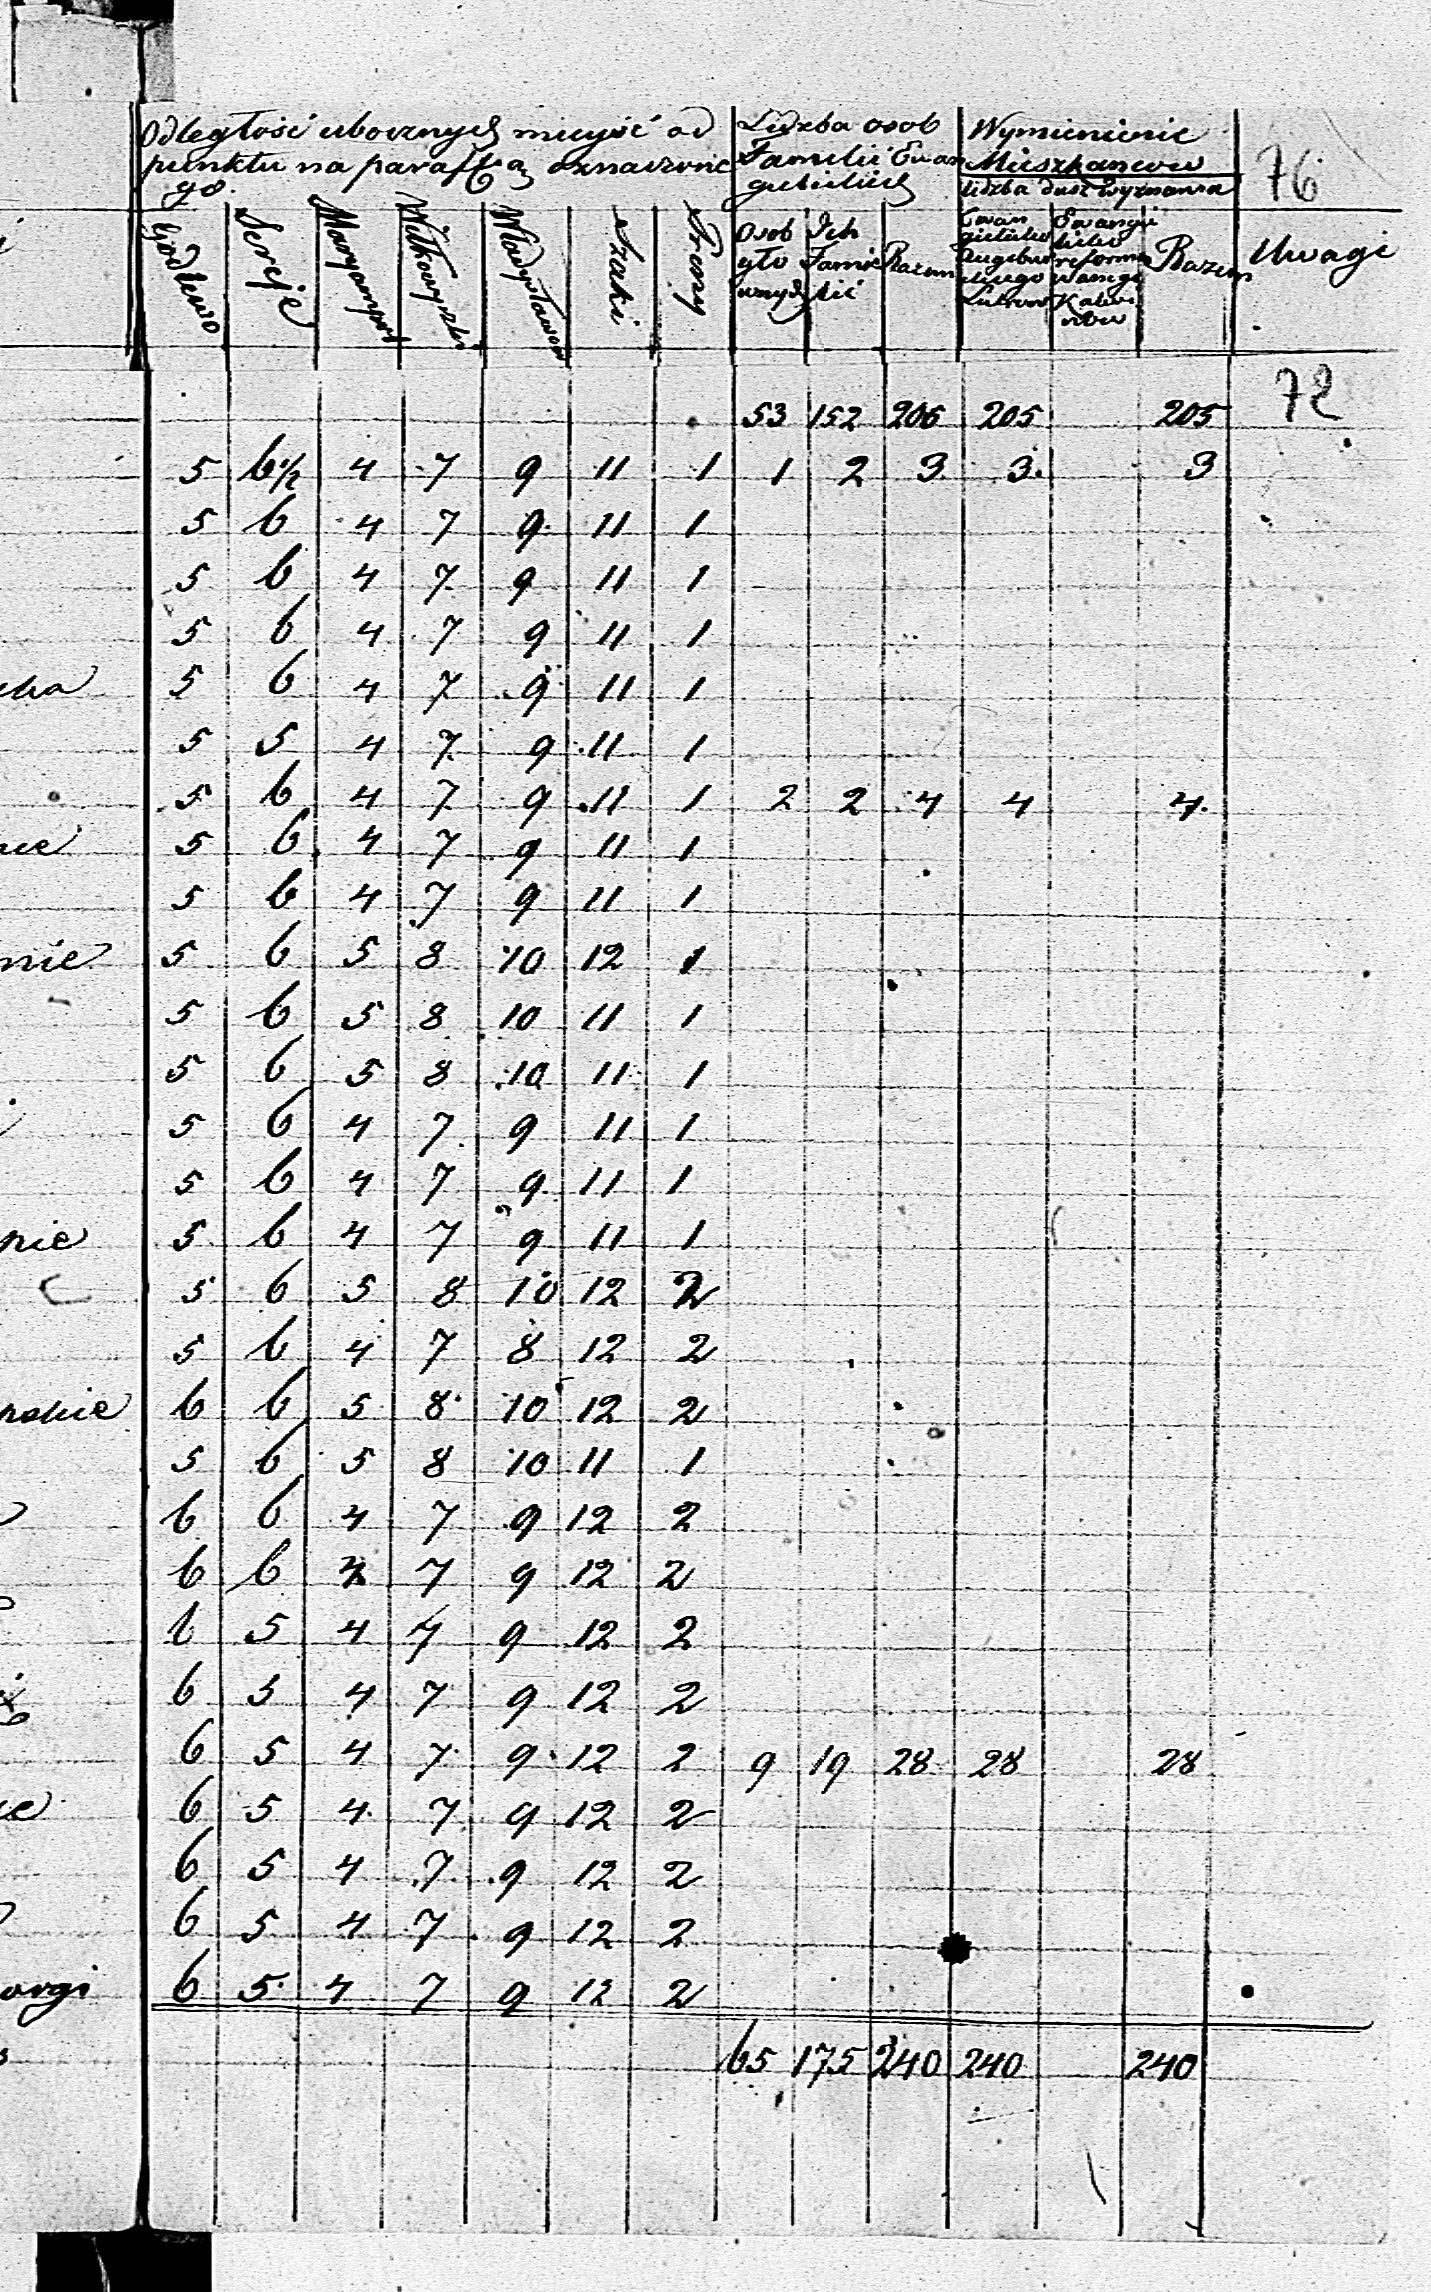 Odległość ubocznych mieysc od
punktu na parafią oznaczone
go.
Liczba osob
Familii Ewan
gielickich
Wymienienie
Mieszkancow
liczba dusz wyznania
76
Godlewo Sereje Maryampol Wiłkowyszki Władysławow Szaki Preny
Osob
Ich
Familii
Razem
Razem
Uwagi
53 152 206 205 205 72
5 6 1/2 4 7 9 11 1 1 2 3 3 3
5 6 4 7 9 11 1
5 6 4 7 9 11 1
5 6 4 7 9 11 1
5 6 4 7 9 11 1
5 5 4 7 9 11 1
5 6 4 7 9 11 1 2 2 4 4 4
5 6 4 7 9 11 1
5 6 4 7 9 11 1
nie 5 6 5 8 10 12 1
5 6 5 8 10 11 1
5 6 5 8 10 11 1
5 6 4 7 9 11 1
5 6 4 7 9 11 1
nie 5 6 4 7 9 11 1
5 6 5 8 10 12 2
5 6 4 7 8 12 2
6 6 5 8 10 12 2
5 6 5 8 10 11 1
6 6 4 7 9 12 2
6 6 4 7 9 12 2
6 5 4 7 9 12 2
6 5 4 7 9 12 2
6 5 4 7 9 12 2 9 19 28 28 28
6 5 4 7 9 12 2
6 5 4 7 9 12 2
6 5 4 7 9 12 2
6 5 4 7 9 12 2
65 175 240 240 240